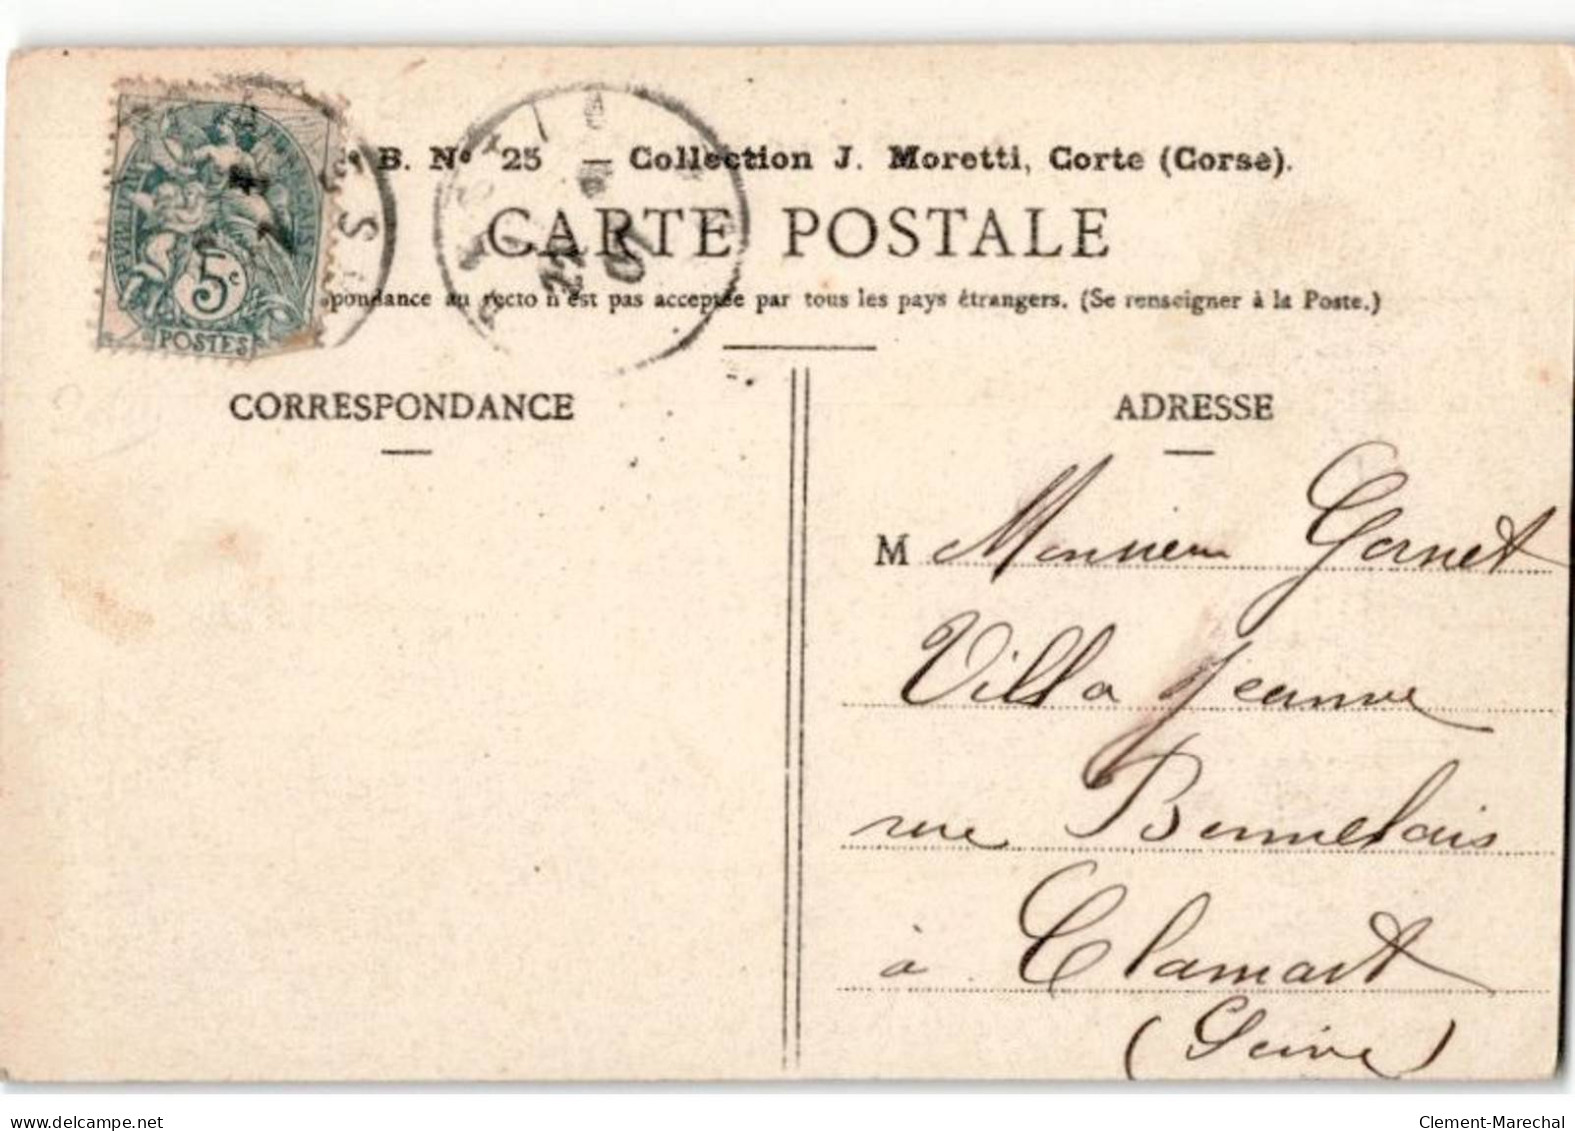 B. Nº 25 — Collection J. Moretti, Corte (Corse).
CARTE POSTALE
pondance au recto n'est pas acceptée par tous les pays étrangers. (Se renseigner à la Poste.)
5c
POSTES
22
07
CORRESPONDANCE
ADRESSE
M Monsieur Gornet
Villa Jeanne
rue
à Clamart
(Seine)
delcampe.net
Clement-Marechal